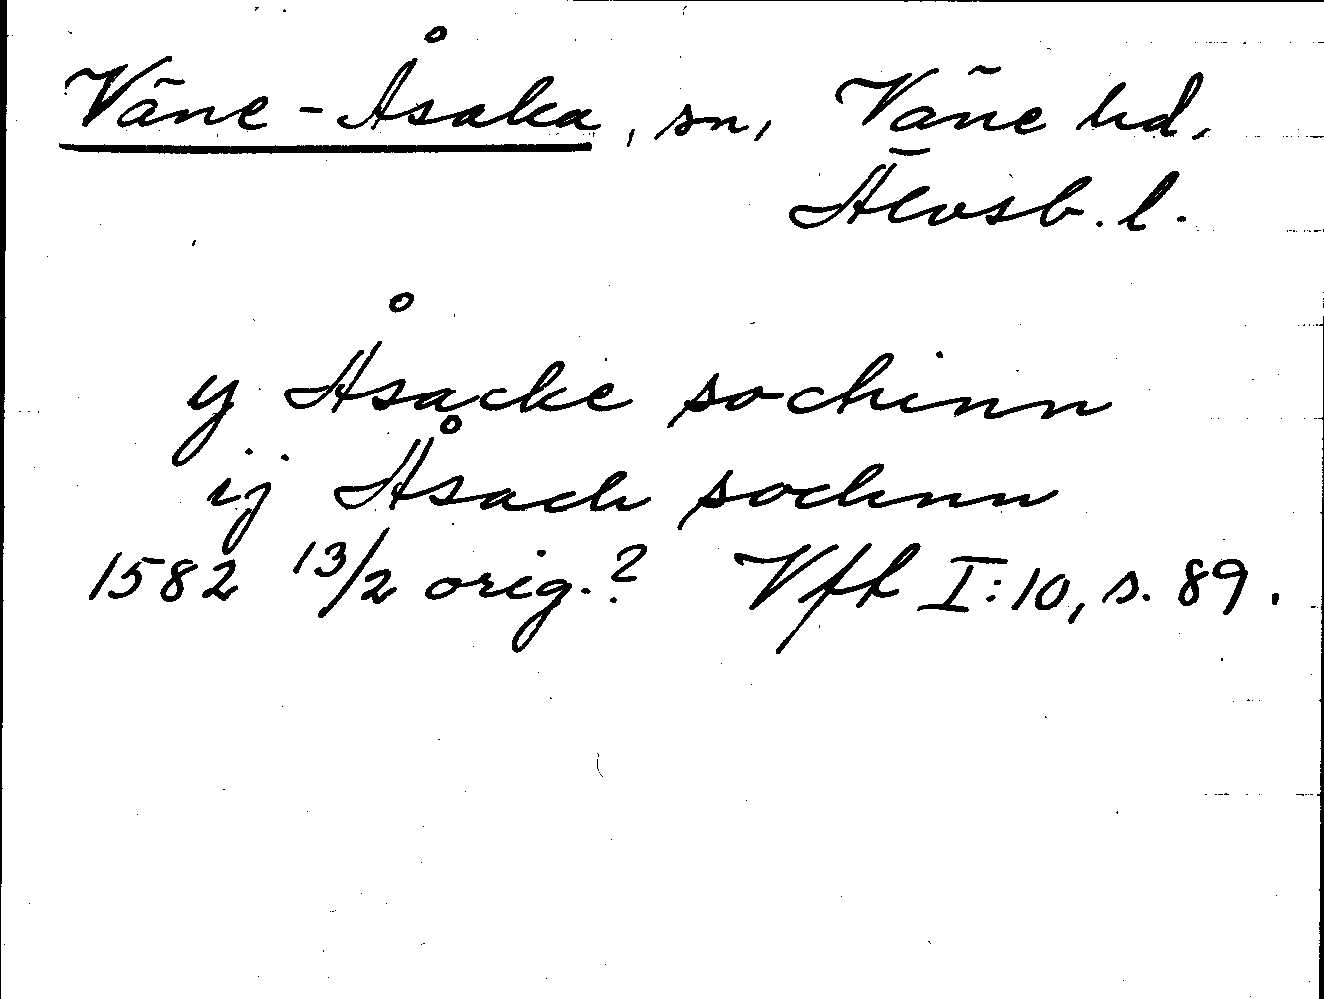 Väne-Åsaka, sn, Väne hd,
Älvsb. l.
y Åsacke sochinn
ij Åsach sochnn
1582 13/2 orig.? Vfh I:10, s. 89.